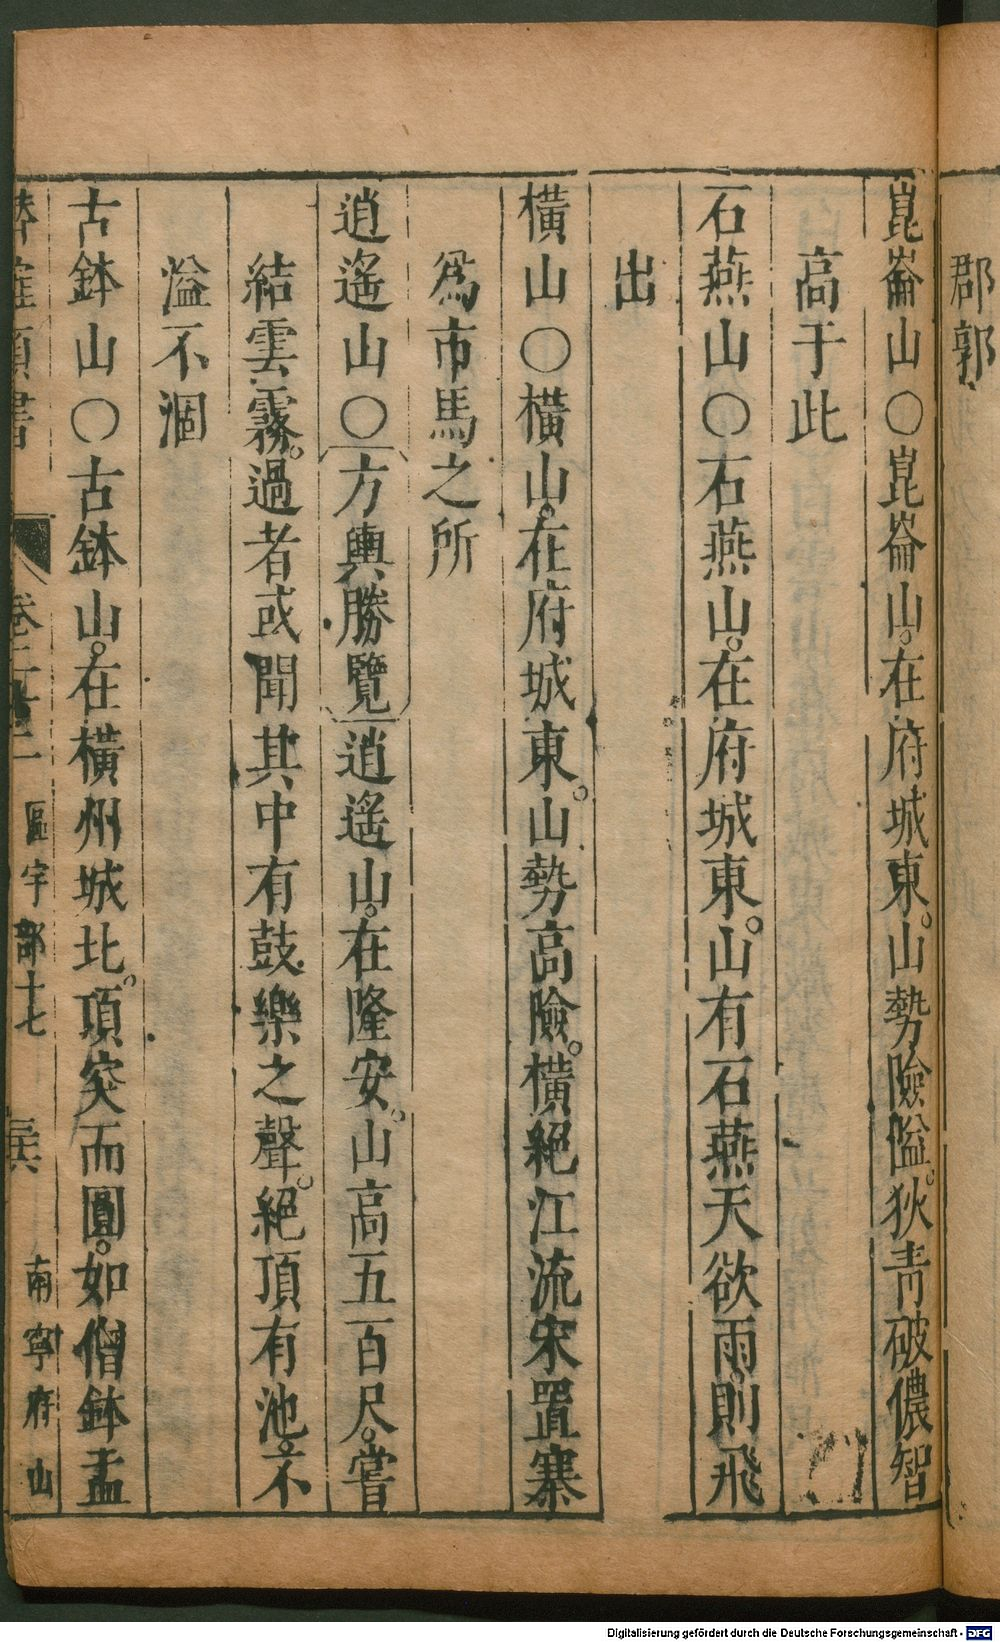 郡郭
崑崙山○崑崙山。在府城東。山勢險隘。狄青破儂智
高于此
石燕山○石燕山。在府城東。山有石燕天欲雨。則飛
出
橫山○橫山。在府城東。山勢高險。橫絕江流宋置寨
爲市馬之所
逍遙山○方輿勝覽逍遙山。在隆安。山高五百尺。嘗
結雲霧。過者或聞其中有鼓樂之聲。絕頂有池。不
溢不涸
古鉢山○古鉢山。在橫州城北。頂突而圓。如僧鉢盂
卷 區宇部十七 南寧府山
Digitalisierung gefördert durch die Deutsche Forschungsgemeinschaft - DFG